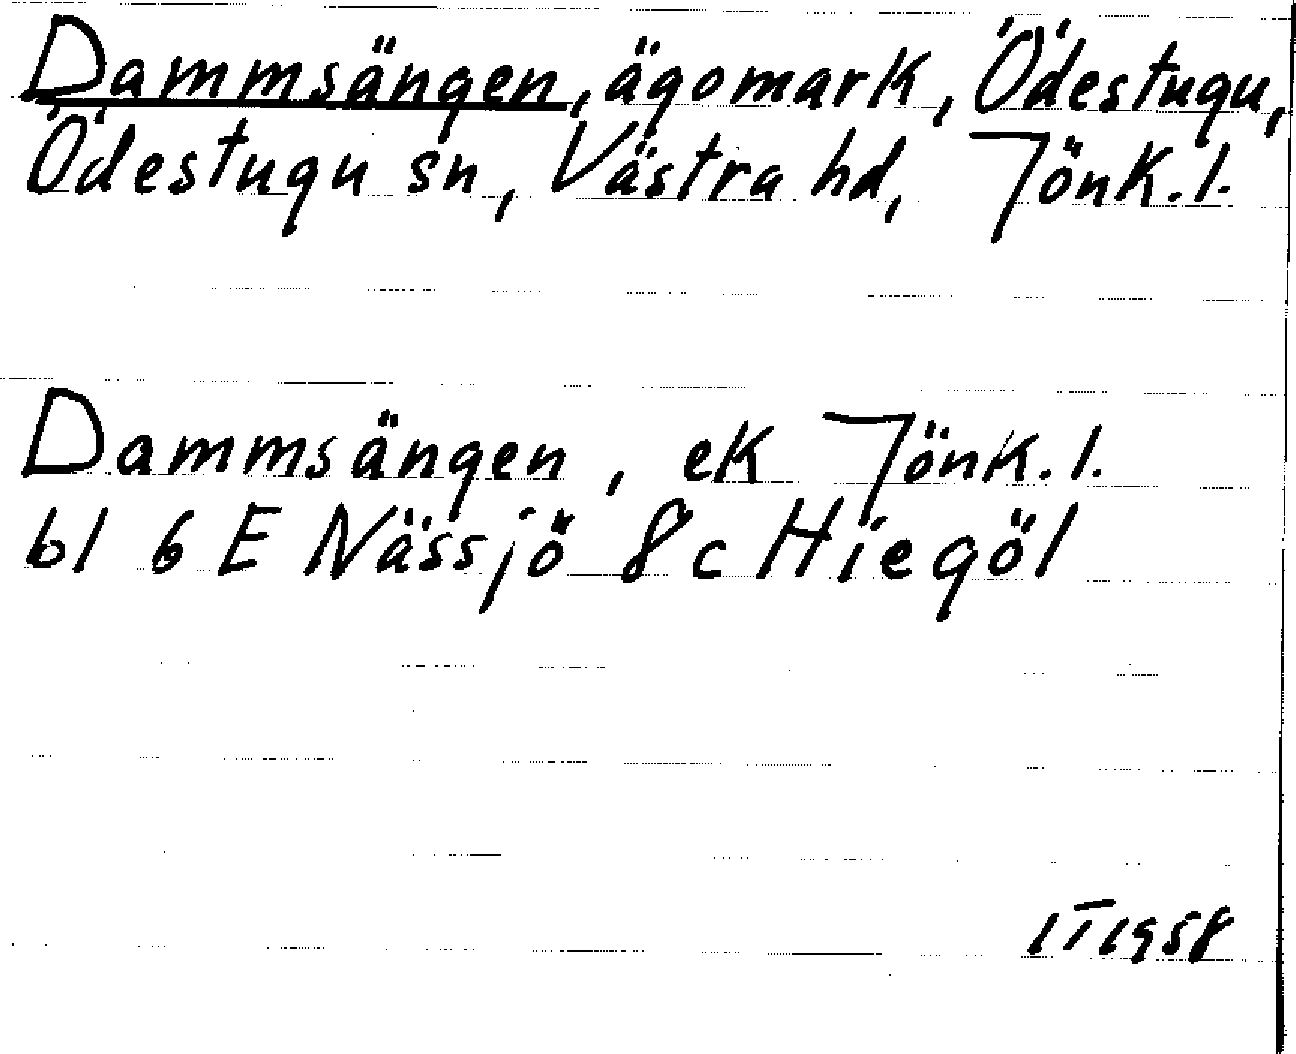 Dammsängen, ägomark, Ödestugu,
Ödestugu sn, Västra hd, Jönk. l.
Dammsängen, ek Jönk. l.
bl 6 E Nässjö 8 c Hiegöl
IT 1958